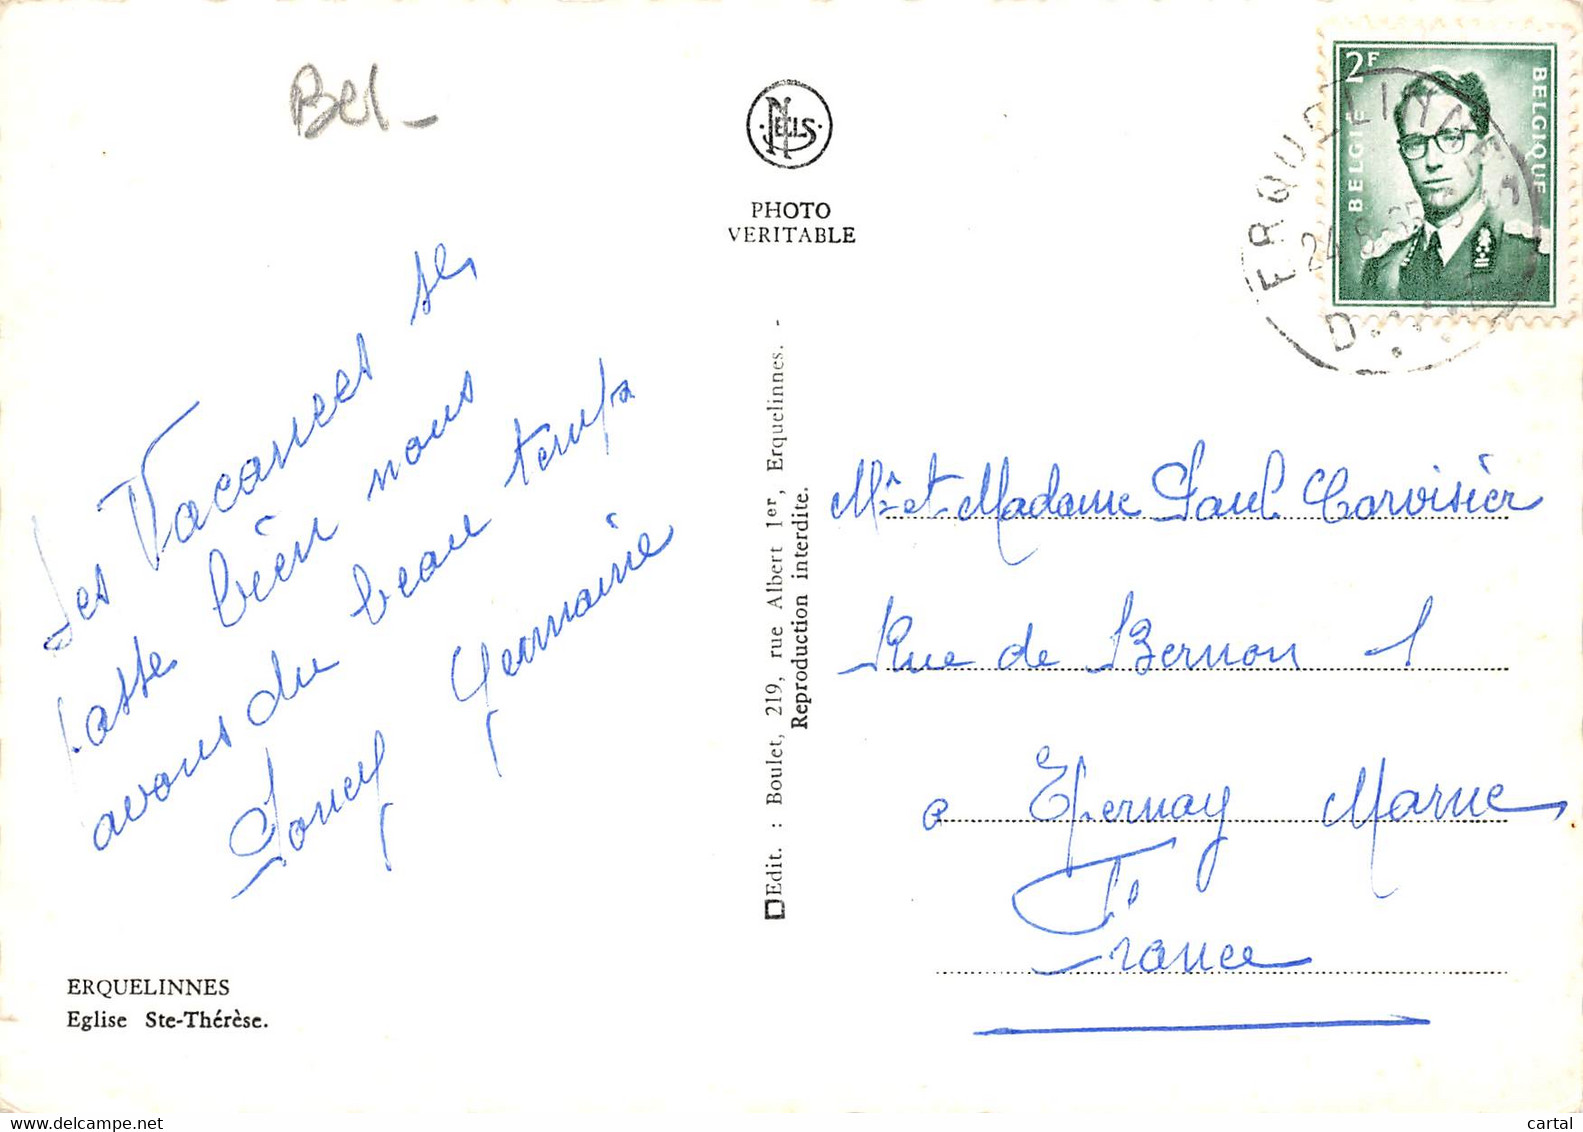 Bel-
NELS
PHOTO
VERITABLE
2F
BELGIE
BELGIQUE
ERQUELINNES
24
D
Les Vacances se
passe bien nous
avons du beau temps
Germaine
ERQUELINNES
Eglise Ste-Thérèse.
Edit. : Boulet, 219, rue Albert 1er, Erquelinnes. -
Reproduction interdite.
Mr et Madame Paul Corvisier
Rue de Bernon 1
a Epernay Marne
France
delcampe.net
cartal